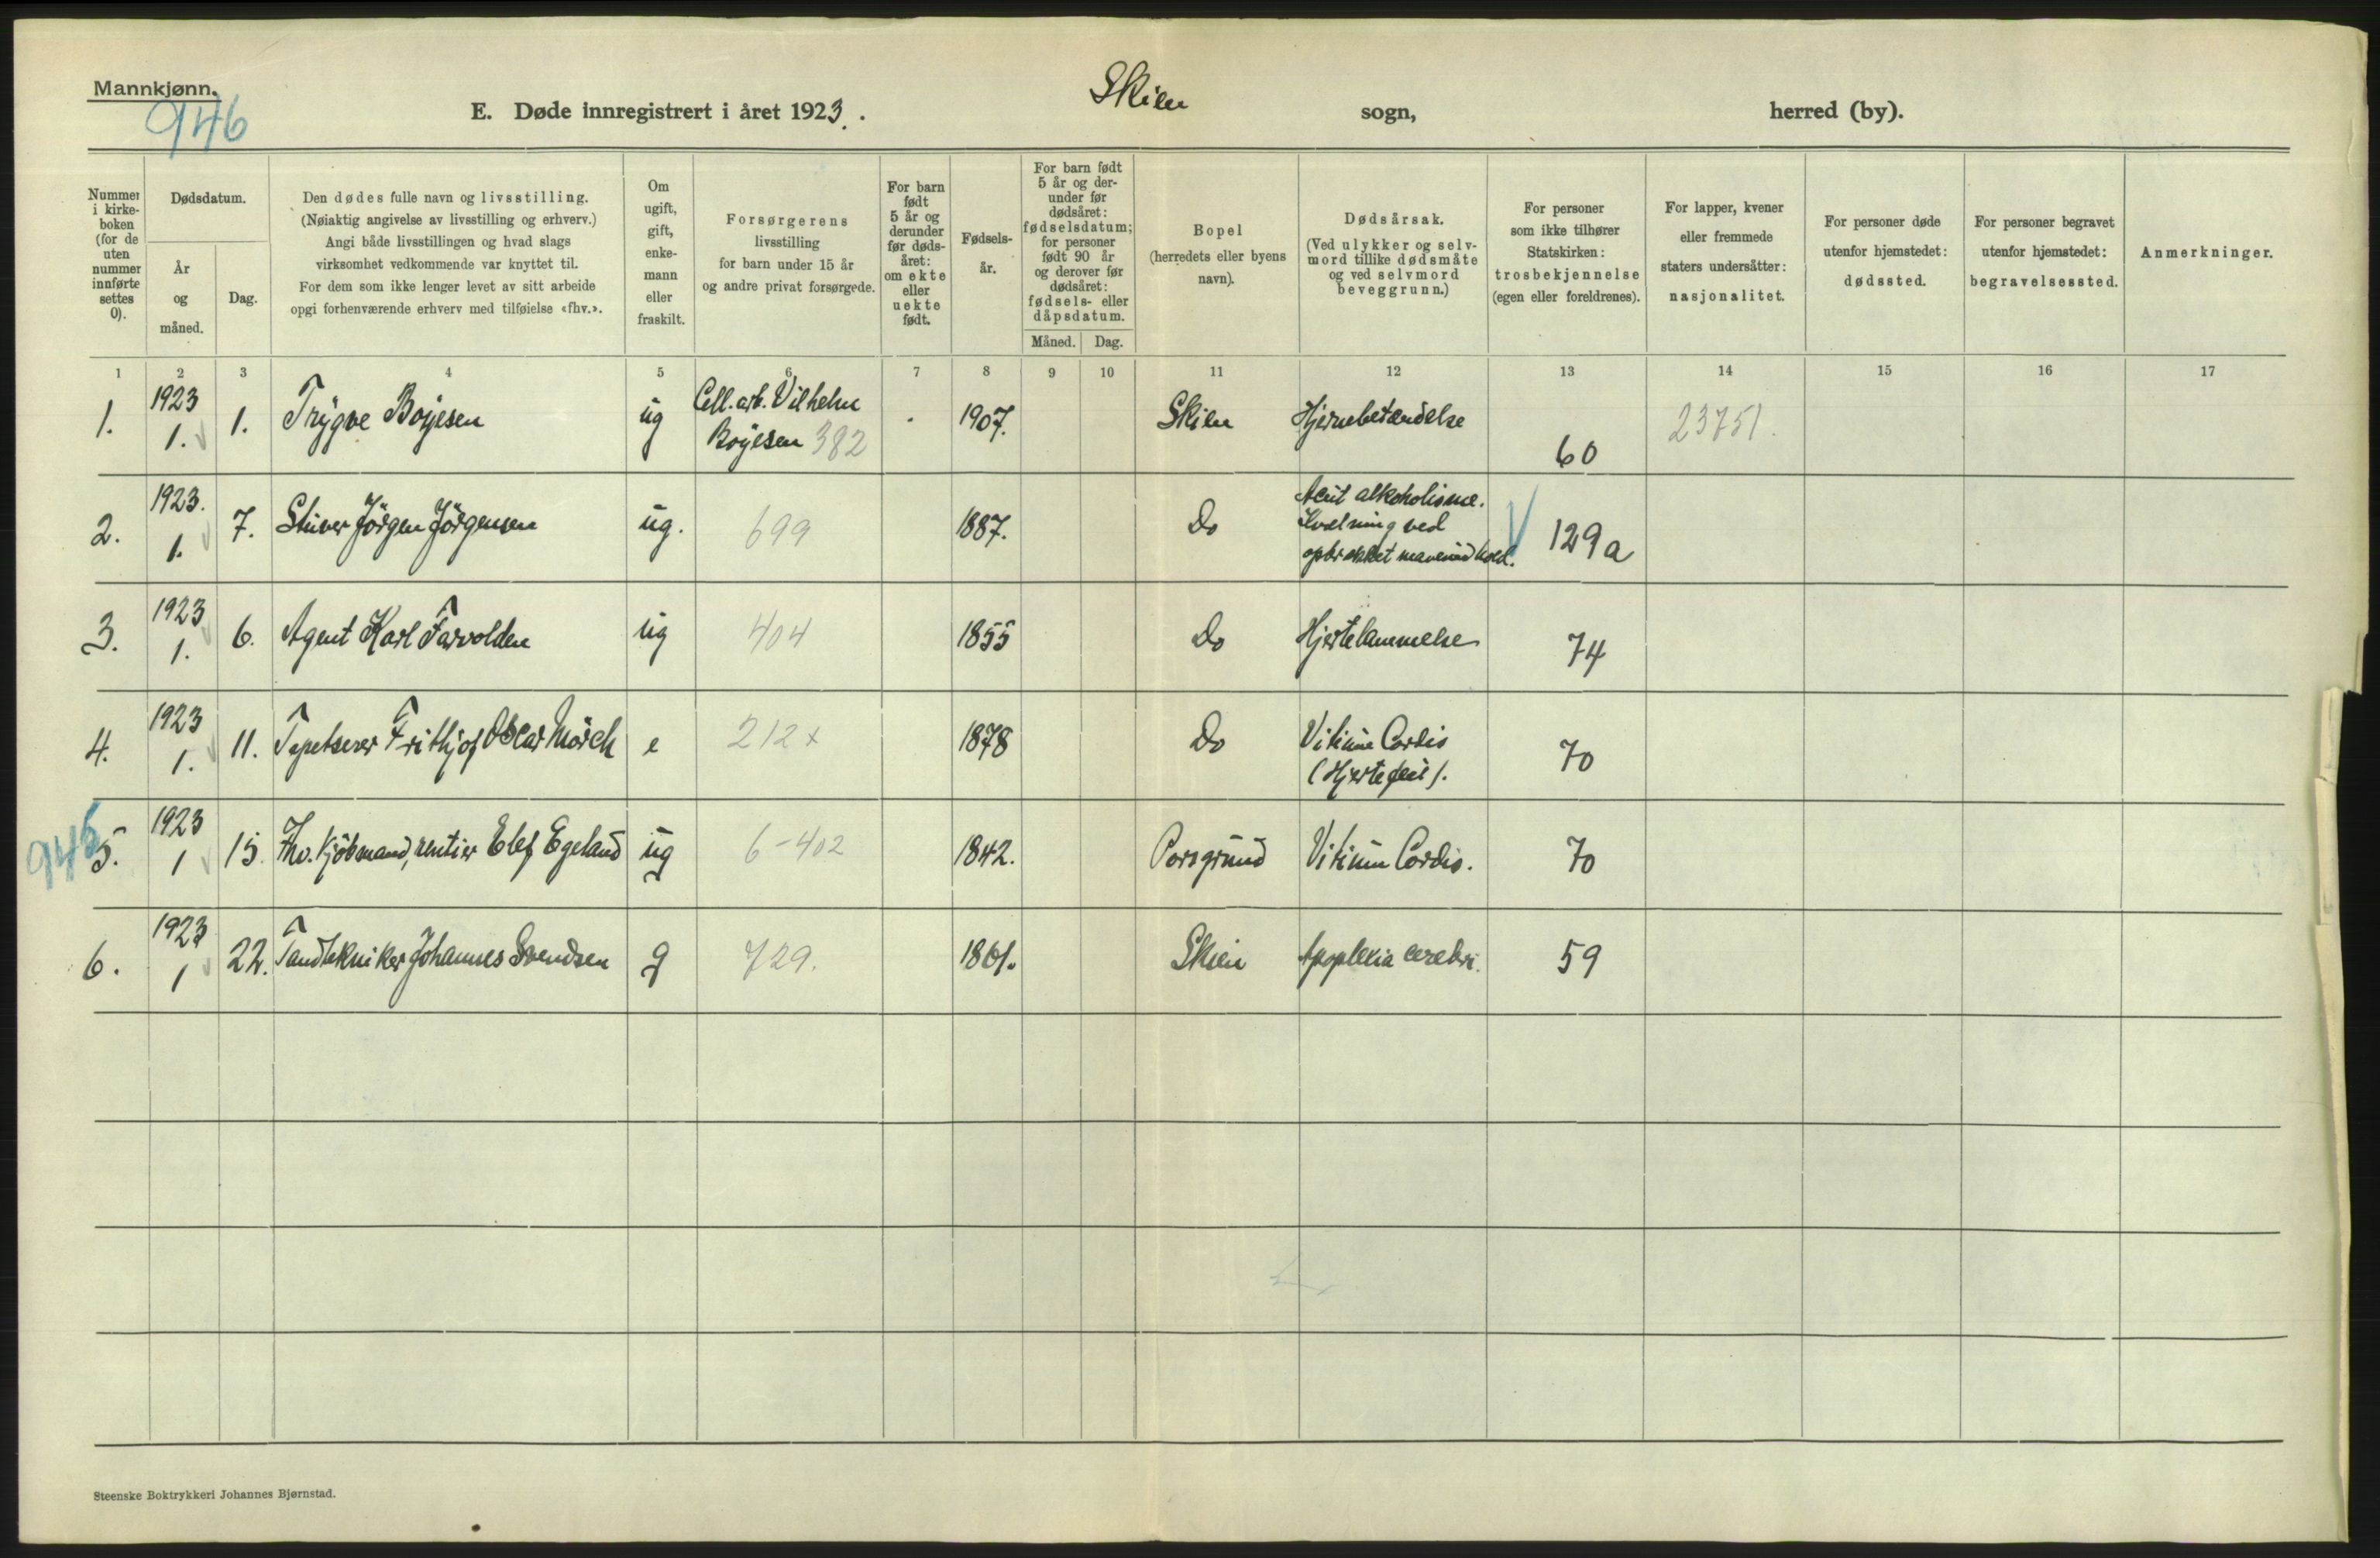 Mannkjønn.
946
E. Døde innregistrert i året 1923.
Skien
sogn,
herred (by).
Nummer
i kirke-
boken
(for de
uten
nummer
innførte
settes
0).
Dødsdatum.
År
og
måned.
Dag.
Den dødes fulle navn og livsstilling.
(Nøiaktig angivelse av livsstilling og erhverv.)
Angi både livsstillingen og hvad slags
virksomhet vedkommende var knyttet til.
For dem som ikke lenger levet av sitt arbeide
opgi forhenværende erhverv med tilføielse «fhv.».
Om
ugift,
gift,
enke-
mann
eller
fraskilt.
Forsørgerens
livsstilling
for barn under 15 år
og andre privat forsørgede.
For barn
født
5 år og
derunder
før døds-
året:
om ekte
eller
uekte
født.
Fødsels-
år.
For barn født
5 år og der-
under før
dødsåret:
fødselsdatum;
for personer
født 90 år
og derover før
dødsåret:
fødsels- eller
dåpsdatum.
Måned.
Dag.
Bopel
(herredets eller byens
navn).
Dødsårsak.
(Ved ulykker og selv-
mord tillike dødsmåte
og ved selvmord
beveggrunn.)
For personer
som ikke tilhører
Statskirken:
trosbekjennelse
(egen eller foreldrenes).
For lapper, kvener
eller fremmede
staters undersåtter:
nasjonalitet.
For personer døde
utenfor hjemstedet:
dødssted.
For personer begravet
utenfor hjemstedet:
begravelsessted.
Anmerkninger.
1 2 3 4 5 6 7 8 9 10 11 12 13 14 15 16 17
1. 1923 1. 1. Trygve Boyesen ug Cell.arb. Vilhelm Boyesen 382 1907. Skien Hjernebetændelse 60 23751.
2. 1923. 1. 7. Stuver Jörgen Jörgensen ug. 699 1887. Do Acut alkoholisme.
Kvælning ved
opbrækket maveindhold. 129a
3. 1923 1. 6. Agent Karl Farvolden ug 404 1855 Do Hjertelammelse 74
4. 1923 1. 11. Tapetserer Frithjof Oscar Mörch e 212x 1878 Do Vitium Cordis
(Hjertefeil). 70
945
5. 1923 1 15. Fhv. Kjöbmand, rentier Elef Egeland ug 6-402 1842. Porsgrund Vitium Cordis. 70
6. 1923 1 22. Tandtekniker Johannes Svendsen g 729. 1861. Skien Apoplexia cerebri. 59
Steenske Boktrykkeri Johannes Bjørnstad.